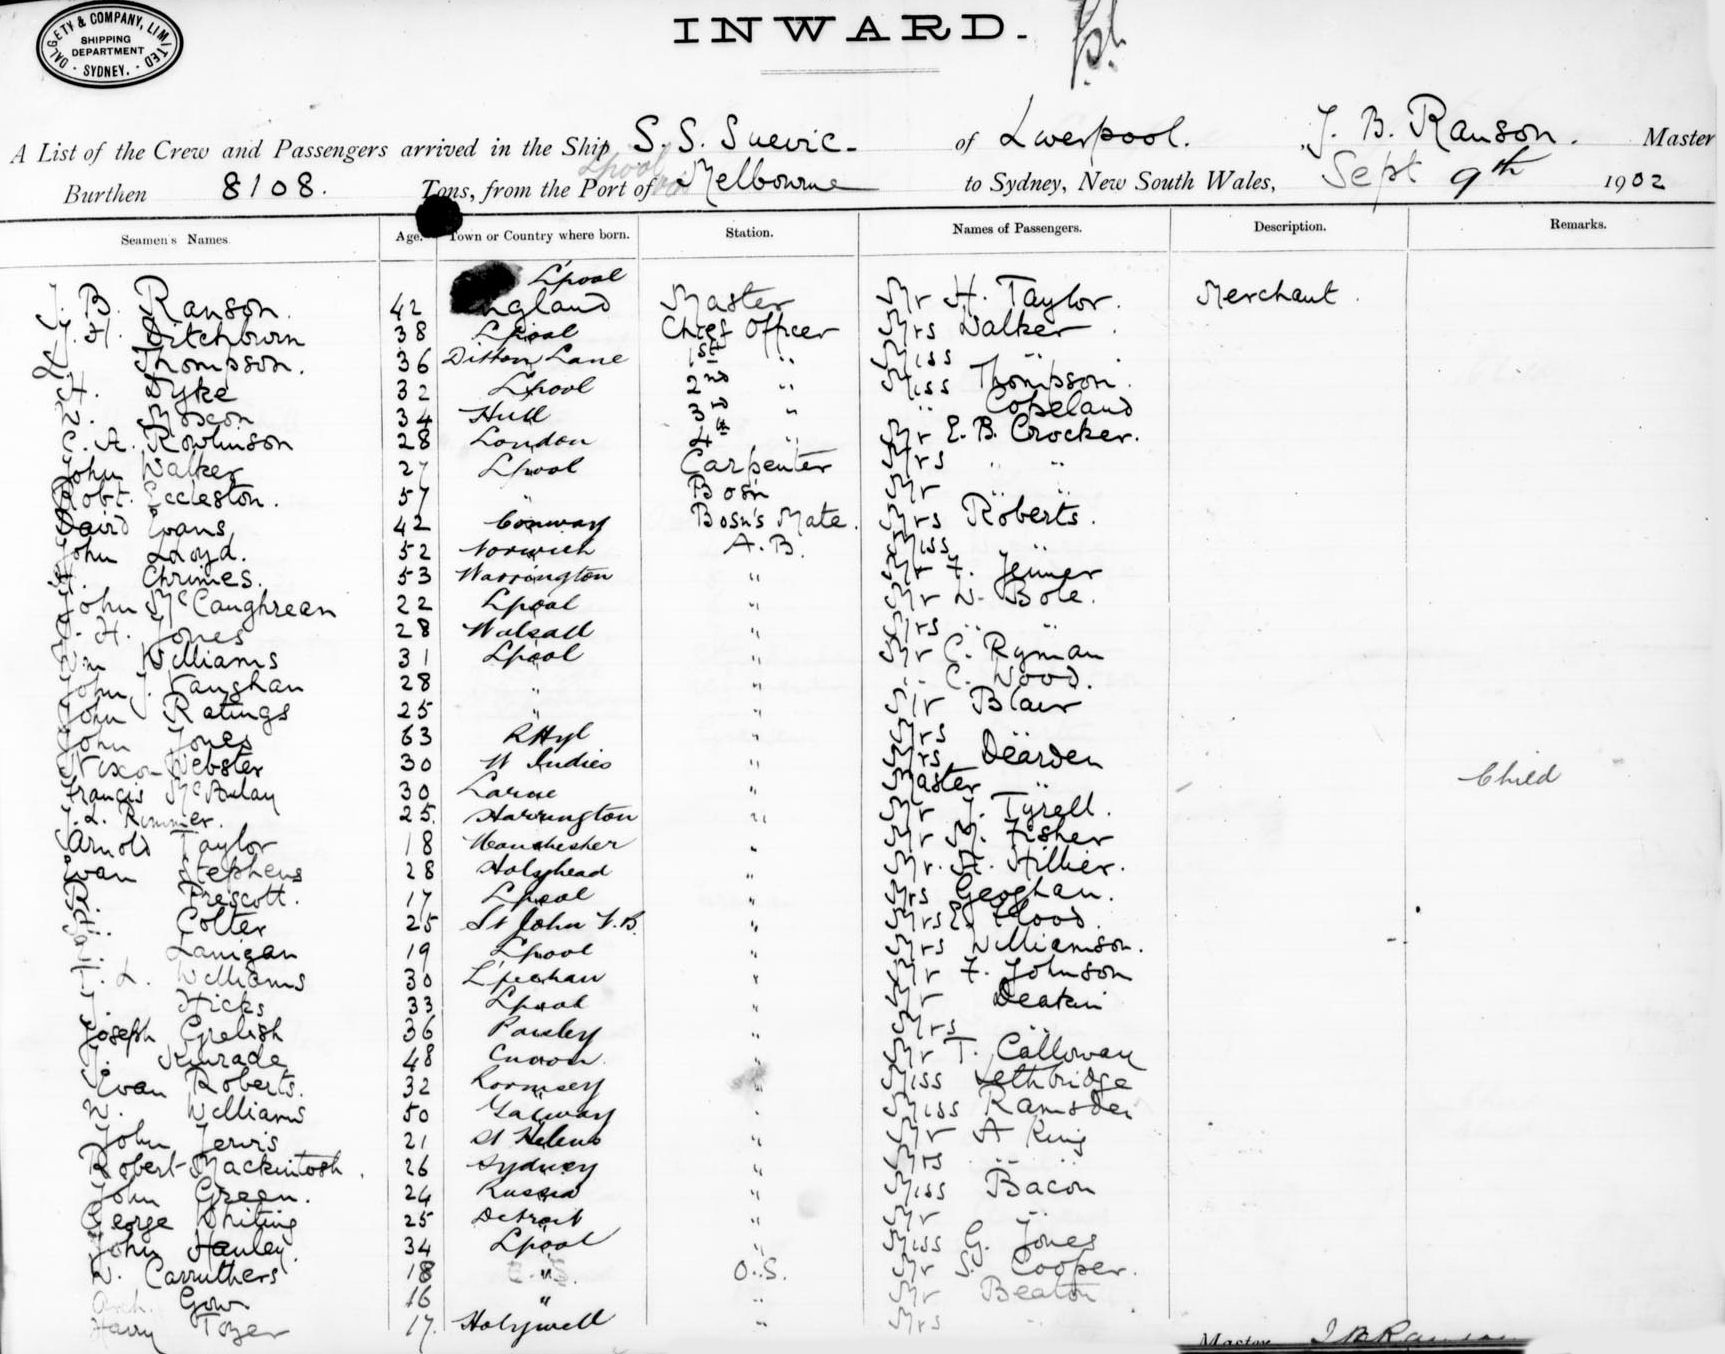 DALGETY & COMPANY, LIMITED
SHIPPING
DEPARTMENT
SYDNEY.
INWARD.
A List of the Crew and Passengers arrived in the Ship S.S. Suevic of Liverpool. J. B. Ranson. Master
Burthen 8108. Tons, from the Port of L'pool Melbourne to Sydney, New South Wales, Sept 9th 1902
Seamen's Names Age. Town or Country where born. Station. Names of Passengers. Description. Remarks.
L'pool
J. B. Ranson. 42 England Master Mr H. Taylor. Merchant.
J. H. Ditchburn 38 L'pool Chief Officer Mrs Walker.
Thompson. 36 Ditton Lane 1st " Miss "
H. Dyke 32 L'pool 2nd " Miss Thompson.
Moxon 34 Hull 3rd " " Copeland
C. A. Rowlinson 28 London 4th " Mr E. B. Crocker.
John Walker 27 L'pool Carpenter Mrs " "
Robt. Eccleston. 57 " Bosn Mr " "
David Evans 42 Conway Bosn's Mate. Mrs Roberts.
John Lloyd. 52 Norwich A.B. Miss "
Chrimes. 53 Warrington " Mr F. Jenner
John McCaughrean 22 L'pool " Mr W. Bole.
J. H. Jones 28 Walsall " Mrs " "
Wm Williams 31 L'pool " Mr C. Ryman
John J. Vaughan 28 " " " C. Wood.
John Ratings 25 " " Mr Blair
John Jones 63 Rhyl " Mrs "
Nixon Webster 30 W Indies " Mrs Dearden
Francis McAulay 30 Larne " Master " Child
J. L. Rimmer. 25. Harrington " Mr J. Tyrell.
Arnold Taylor 18 Manchester " Mr M. Fisher
Evan Stephens 28 Holyhead " Mr. H. Hillier.
Prescott. 17 L'pool " Mrs Geoghan.
Colter 25 St John N.B. " Mrs E. Flood.
Lanigan 19 L'pool " Mrs Williamson.
L. Williams 30 " Mr F. Johnson
J. Hicks 33 L'pool " Mr Deakin
Joseph Grelish 36 Paisley " Mrs "
J. Kinrade 48 " Mr T. Calloway
Evan Roberts. 32 " Miss Lethbridge
W. Williams 50 Galway " Miss Ramsden
John Jervis 21 St Helens " Mr A King
Robert Mackintosh. 26 Sydney " Mrs " "
John Green. 24 Russia " Miss Bacon
George Whiting 25 Detroit " Mr "
John Hanley. 34 L'pool " Miss G. Jones
W. Carruthers 18 " O.S. Mr S. Cooper.
Arch. Gow 16 " " Mr Beaton
Harry Tozer 17. Holywell " Mrs "
Master J B Ranson